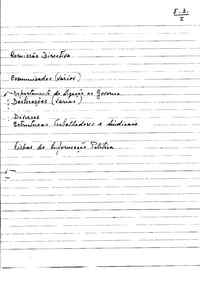 5.3.
2
Comissão Directiva
Comunicados (vários)
Departamento de Ligação ao Governo
Declarações (várias)
Diversos
Estruturas Trabalhadores e Sindicais
Fichas de Informação Política